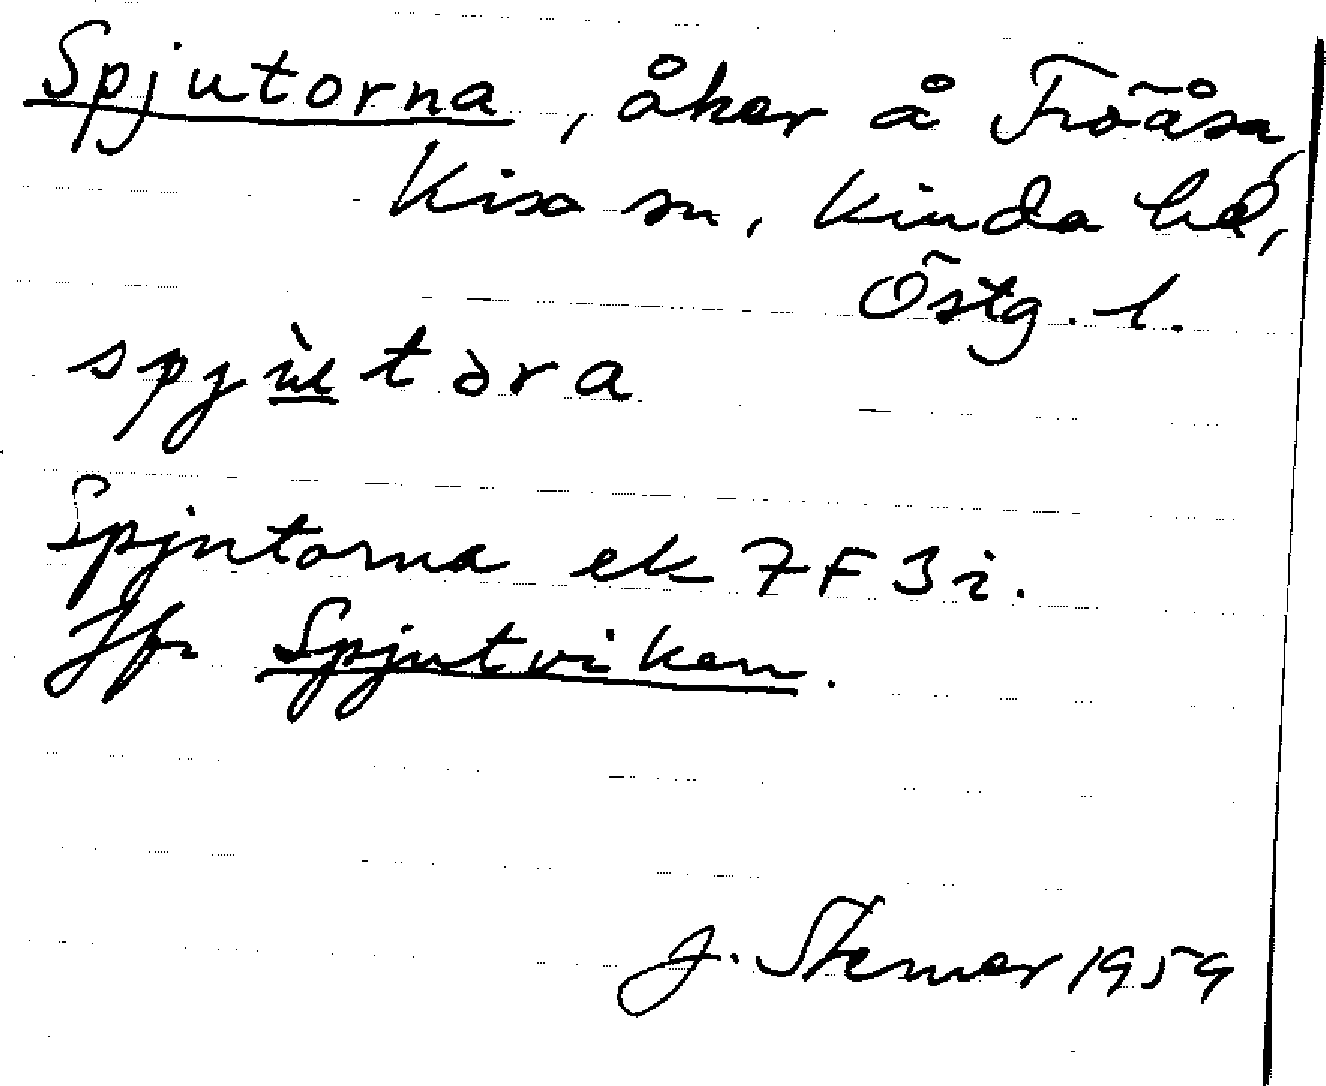 Spjutorna, åker å Fröåsa,
Kisa sn, Kinda hd,
Östg. l.
spjùtòra
Spjutorna ek 7F3i.
Jfr Spjutviken.
J. Sterner 1959